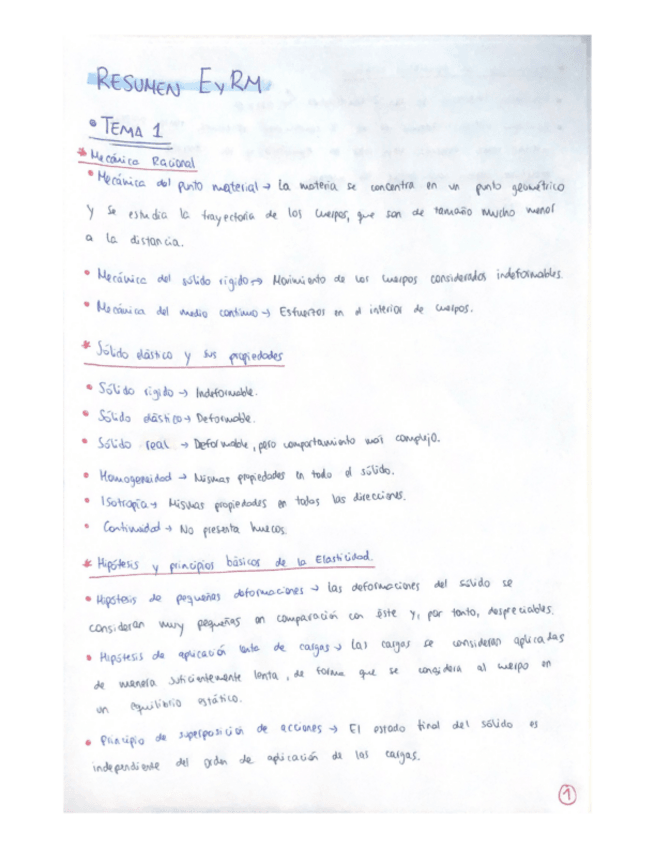 RESUMEN EyRM
• TEMA 1
* Mecánica Racional
• Mecánica del punto material → La materia se concentra en un punto geométrico
y se estudia la trayectoria de los cuerpos, que son de tamaño mucho menor
a la distancia.
• Mecánica del sólido rígido → Movimiento de los cuerpos considerados indeformables.
• Mecánica del medio continuo → Esfuerzos en el interior de cuerpos.
* Sólido elástico y sus propiedades
• Sólido rígido → Indeformable.
• Sólido elástico → Deformable.
• Sólido real → Deformable, pero comportamiento más complejo.
• Homogeneidad → Mismas propiedades en todo el sólido.
• Isotropía → Mismas propiedades en todas las direcciones.
• Continuidad → No presenta huecos.
* Hipótesis y principios básicos de la Elasticidad.
• Hipótesis de pequeñas deformaciones → Las deformaciones del sólido se
consideran muy pequeñas en comparación con éste y, por tanto, despreciables.
• Hipótesis de aplicación lenta de cargas → Las cargas se consideran aplicadas
de manera suficientemente lenta, de forma que se considera al cuerpo en
un equilibrio estático.
• Principio de superposición de acciones → El estado final del sólido es
independiente del orden de aplicación de las cargas.
1